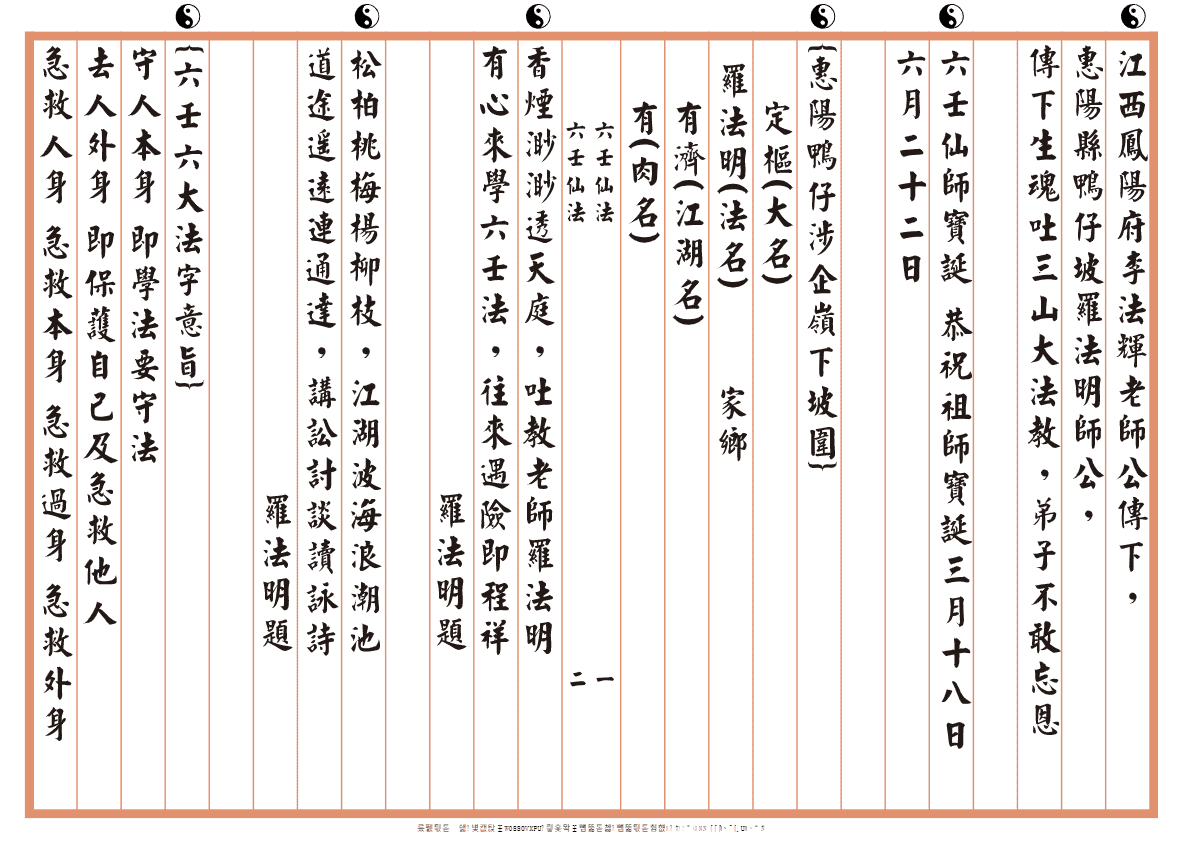 江西鳳陽府李法輝老師公傳下，
惠陽縣鴨仔坡羅法明師公，
傳下生魂吐三山大法教，弟子不敢忘恩
六壬仙師寶誕 恭祝祖師寶誕三月十八日
六月二十二日
{惠陽鴨仔涉企嶺下坡圍}
定樞(大名)
羅法明(法名) 家鄉
有濟(江湖名)
有(肉名)
六壬仙法 一
六壬仙法 二
香煙渺渺透天庭，吐教老師羅法明
有心來學六壬法，往來遇險即程祥
羅法明題
松柏桃梅楊柳枝，江湖波海浪潮池
道途遥遠連通達，講訟討談讀詠詩
羅法明題
{六壬六大法字意旨}
守人本身 即學法要守法
去人外身 即保護自己及急救他人
急救人身 急救本身 急救過身 急救外身